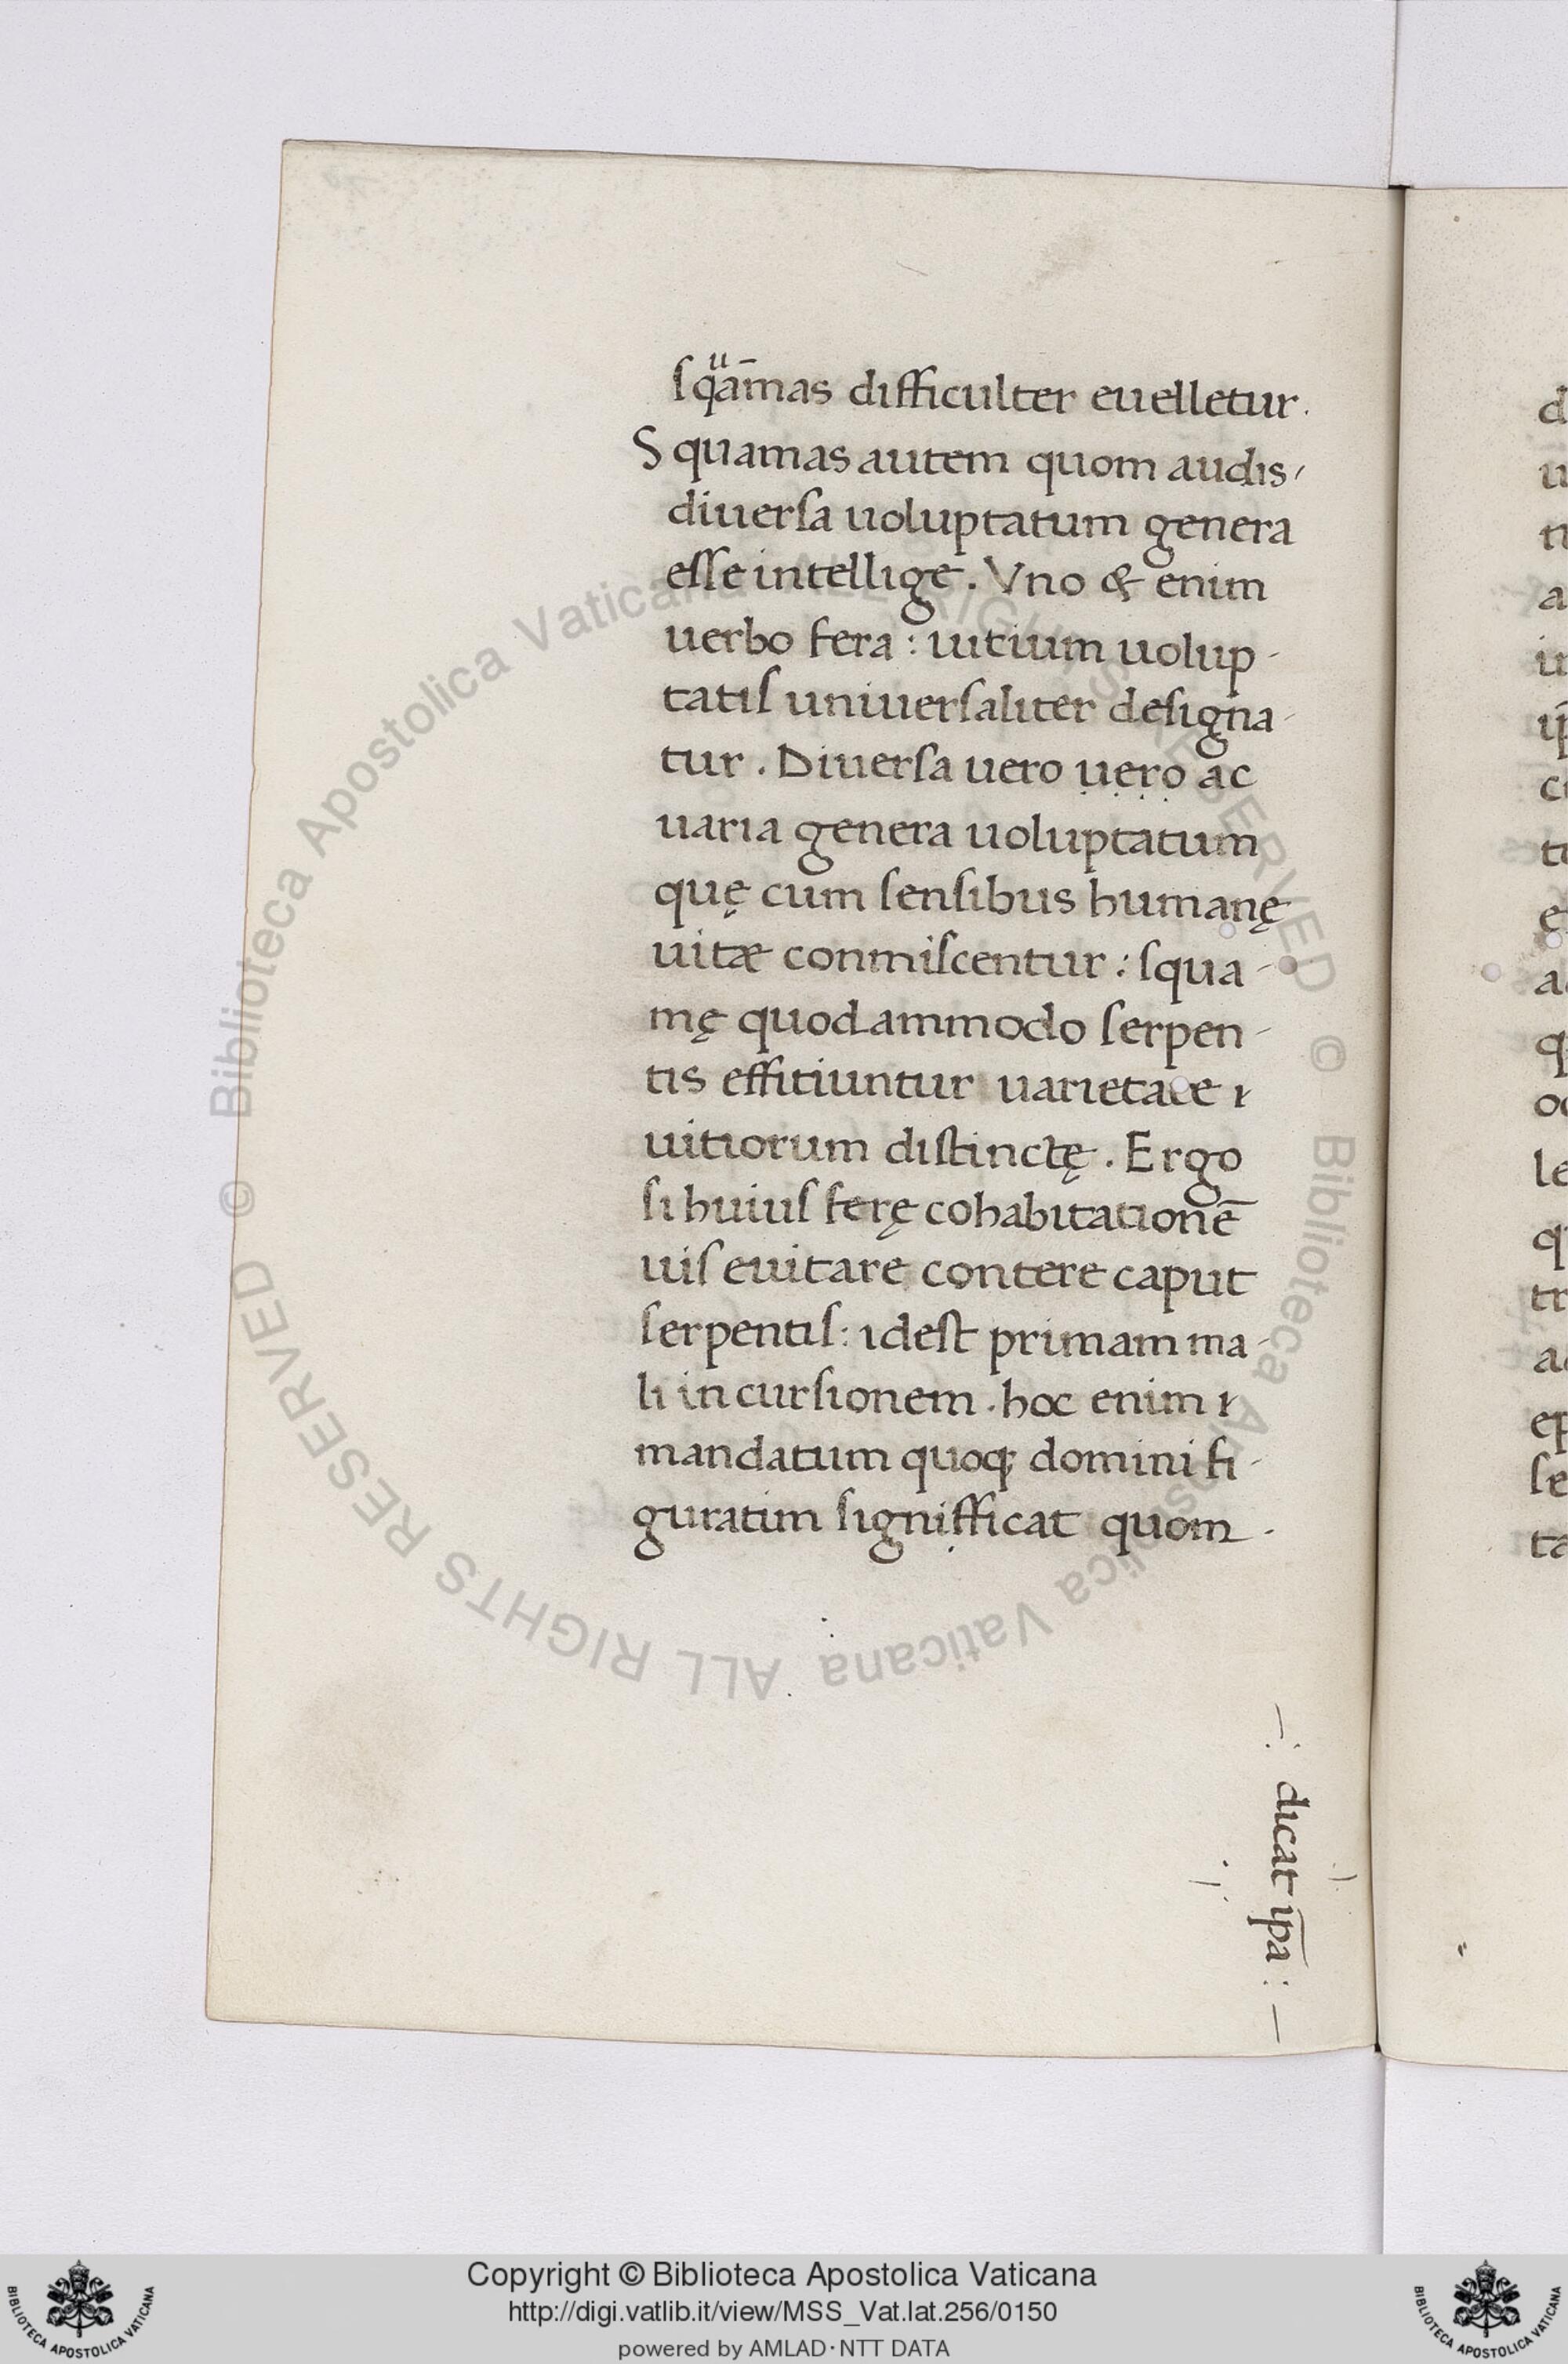 sq̄ᵘamas difficulter euelletur.
Squamas autem quom audis,
diuersa uoluptatum genera
esse intellige. Vno & enim
uerbo fera : uitium uolup-
tatis uniuersaliter designa-
tur. Diuersa uero ụẹṛọ ac
uaria genera uoluptatum
quę cum sensibus humanę
uitæ conmiscentur : squa-
mę quodammodo serpen-
tis effitiuntur uarietate
uitiorum distinctę. Ergo
si huius ferę cohabitationē
uis euitare contere caput
serpentis: idest primam ma-
li incursionem. hoc enim
mandatum quoq; domini fi-
guratim signifficat quom
dicat ip̄a :
d
u
n
a
iu
ip̄
c
tu
e
a
q
oc
le
q
tr
a
ep
se
ta
© Biblioteca Apostolica Vaticana ALL RIGHTS RESERVED © Biblioteca Apostolica Vaticana ALL RIGHTS RESERVED
Copyright © Biblioteca Apostolica Vaticana
http://digi.vatlib.it/view/MSS_Vat.lat.256/0150
powered by AMLAD·NTT DATA
BIBLIOTECA APOSTOLICA VATICANA
BIBLIOTECA APOSTOLICA VATICANA